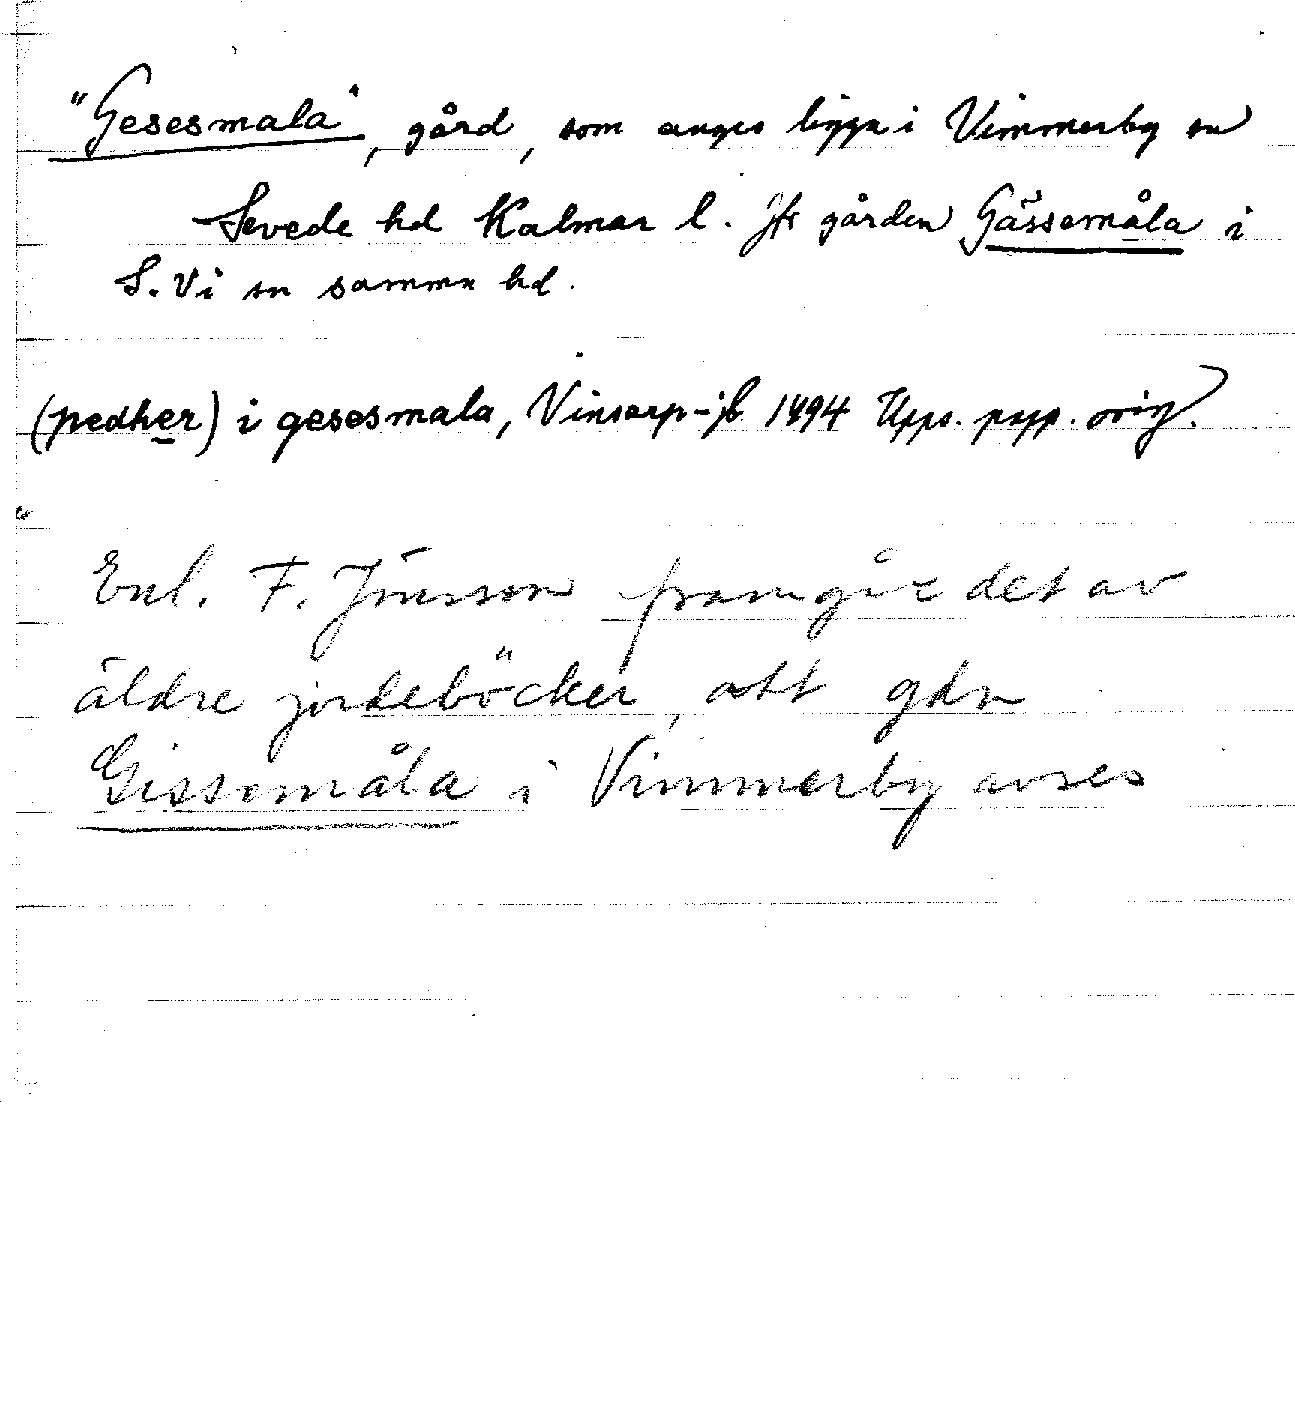 "Gesesmala", gård, som anges ligga i Vimmerby sn
Sevede hd Kalmar l. Jfr gården Gässemåla i
S. Vi sn samma hd.
(pedher) i gesesmala, Vinsarp-jb 1494 Upps. papp. orig.
Enl. F. Jonsson framgår det av
äldre jordeböcker, att gdn
Gissemåla i Vimmerby avses